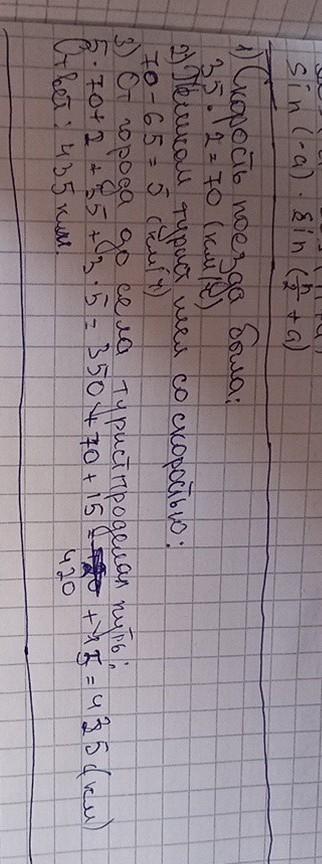 sin(-a) · sin(π/2 + a)
1) Скорость поезда была:
35 · 2 = 70 (км/ч)
2) Пешком турист шел со скоростью:
70 - 65 = 5 (км/ч)
3) От города до села турист проделал путь:
5 · 70 + 2 · 35 + 3 · 5 = 350 + 70 + 15 = 420 + 15 = 435 (км)
Ответ: 435 км.